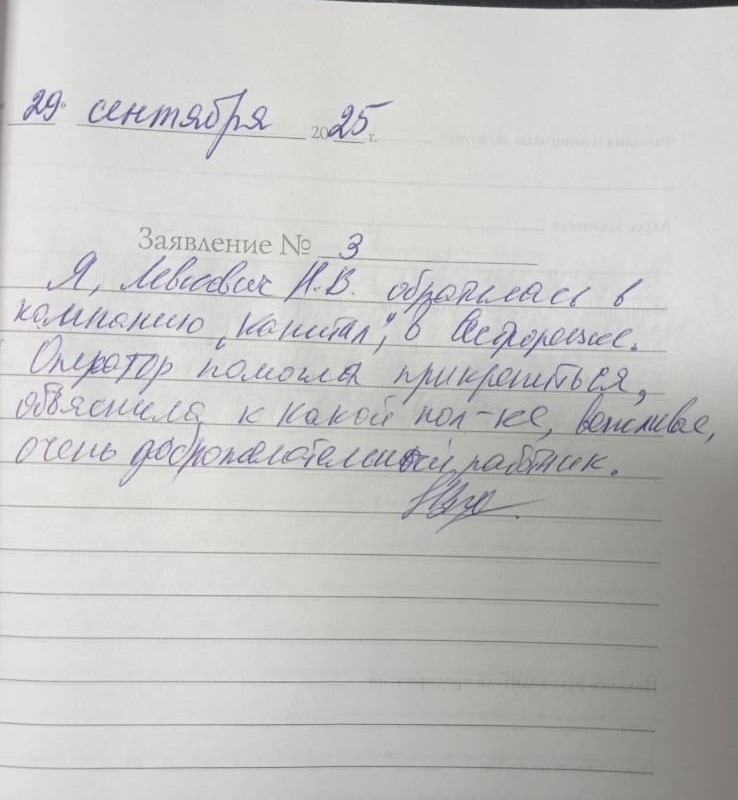 29 сентября 2025 г.
Заявление № 3
Я, Н.В. обратилась в
компанию "Капитал", в Сестрорецке.
Оператор помогла прикрепиться,
объяснила к какой пол-ке, вежливая,
очень доброжелательный работник.